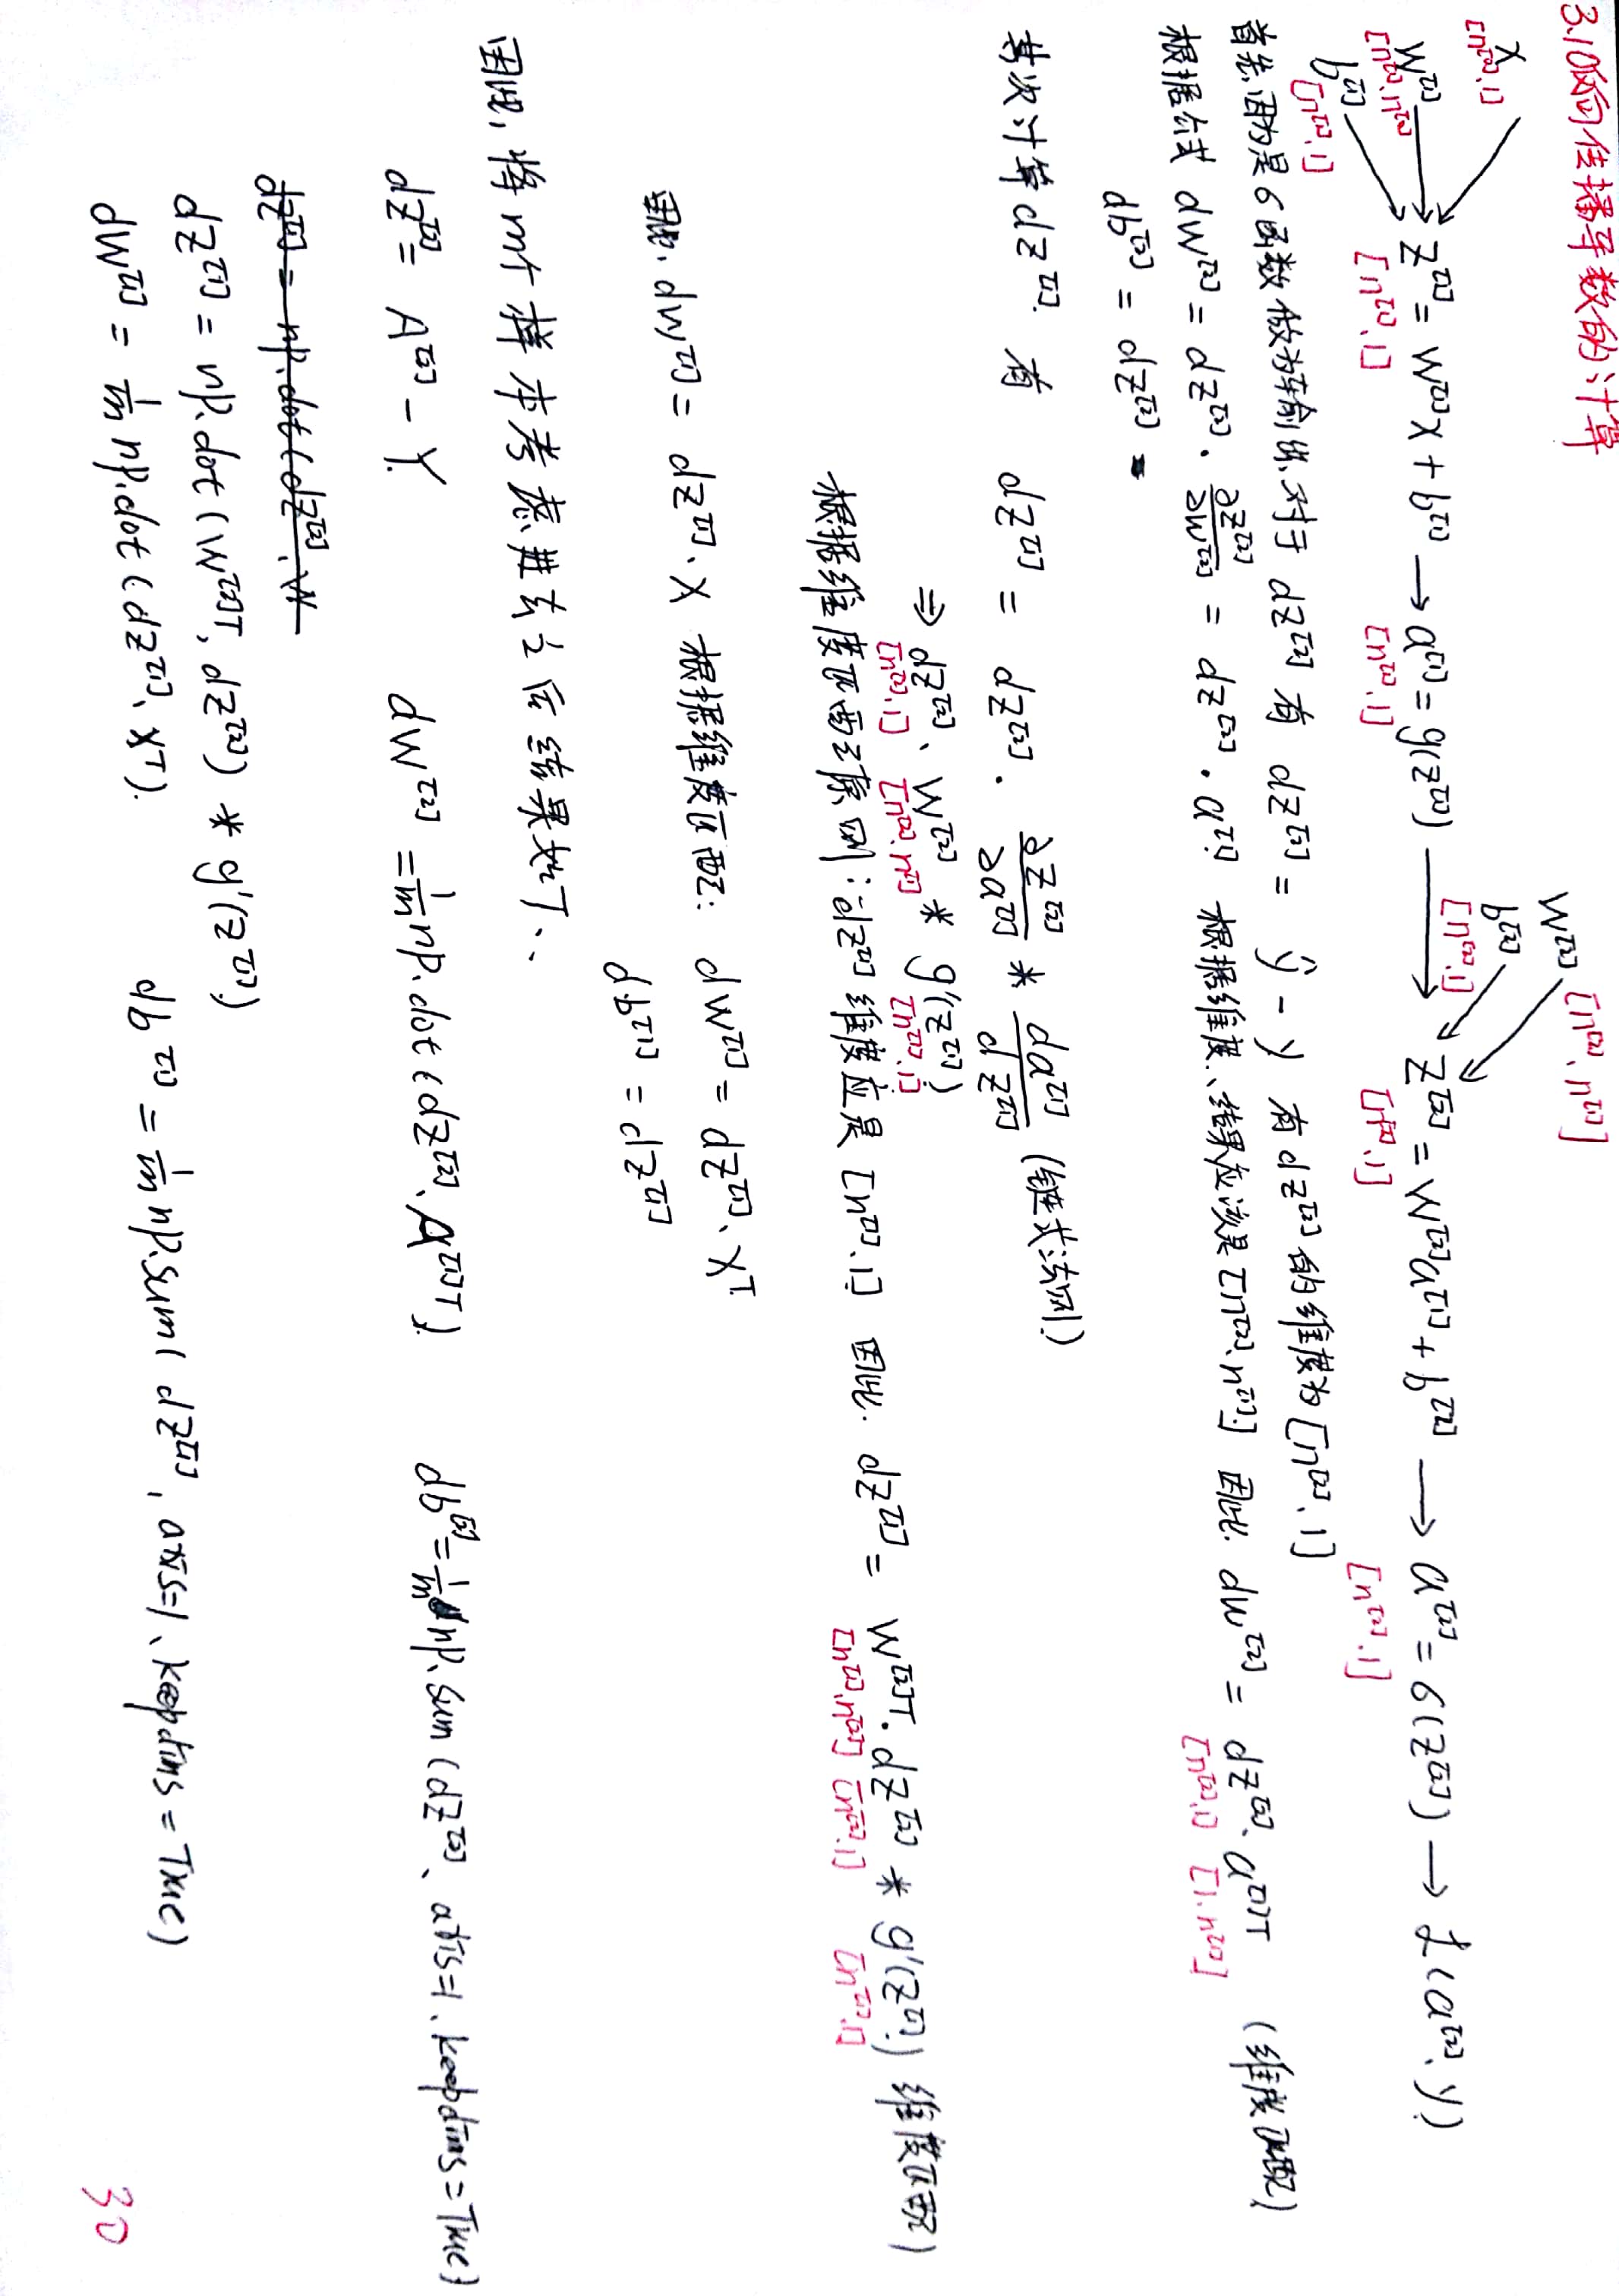 3.10反向传播导数的计算
x
[n^[0], 1]
W^[1]
[n^[1], n^[0]]
b^[1]
[n^[1], 1]
z^[1] = W^[1]x + b^[1] → a^[1] = g(z^[1]) → z^[2] = W^[2]a^[1] + b^[2] → a^[2] = σ(z^[2]) → L(a^[2], y)
[n^[1], 1] [n^[1], 1] [n^[2], 1] [n^[2], 1]
W^[2] [n^[2], n^[1]]
b^[2]
[n^[2], 1]
首先,因为是σ函数做为输出,对于 dz^[2] 有 dz^[2] = ŷ - y 有 dz^[2] 的维度为[n^[2], 1]
根据公式 dW^[2] = dz^[2] · ∂z^[2]/∂W^[2] = dz^[2] · a^[1] 根据维度、结果应该是[n^[2], n^[1]] 因此. dW^[2] = dz^[2]、a^[1]T (维度匹配)
[n^[2], 1] [1, n^[1]]
db^[2] = dz^[2]
其次计算dz^[1]. 有 dz^[1] = dz^[2] · ∂z^[2]/∂a^[1] * da^[1]/dz^[1] (链式法则)
⇒ dz^[2]、W^[2] * g'(z^[1])
[n^[2], 1] [n^[2], n^[1]] [n^[1], 1]
根据维度匹配之原则:dz^[1] 维度应是 [n^[1], 1] 因此. dz^[1] = W^[2]T · dz^[2] * g'(z^[1]) 维度匹配)
[n^[1], n^[2]] [n^[2], 1] [n^[1], 1]
因此. dW^[1] = dz^[1]、x 根据维度匹配: dW^[1] = dz^[1]、x^T.
db^[1] = dz^[1]
因此,将m个样本考虑进去之后结果如下:
dz^[2] = A^[2] - Y. dW^[2] = 1/m np.dot(dz^[2]、A^[1]T). db^[2] = 1/m np.sum(dz^[2]、axis=1、keepdims=True)
dz^[1] = np.dot(dz^[2]、W
dz^[1] = np.dot(W^[2]T, dz^[2]) * g'(z^[1])
dW^[1] = 1/m np.dot(dz^[1]、x^T). db^[1] = 1/m np.sum(dz^[1], axis=1、keepdims=True)
30